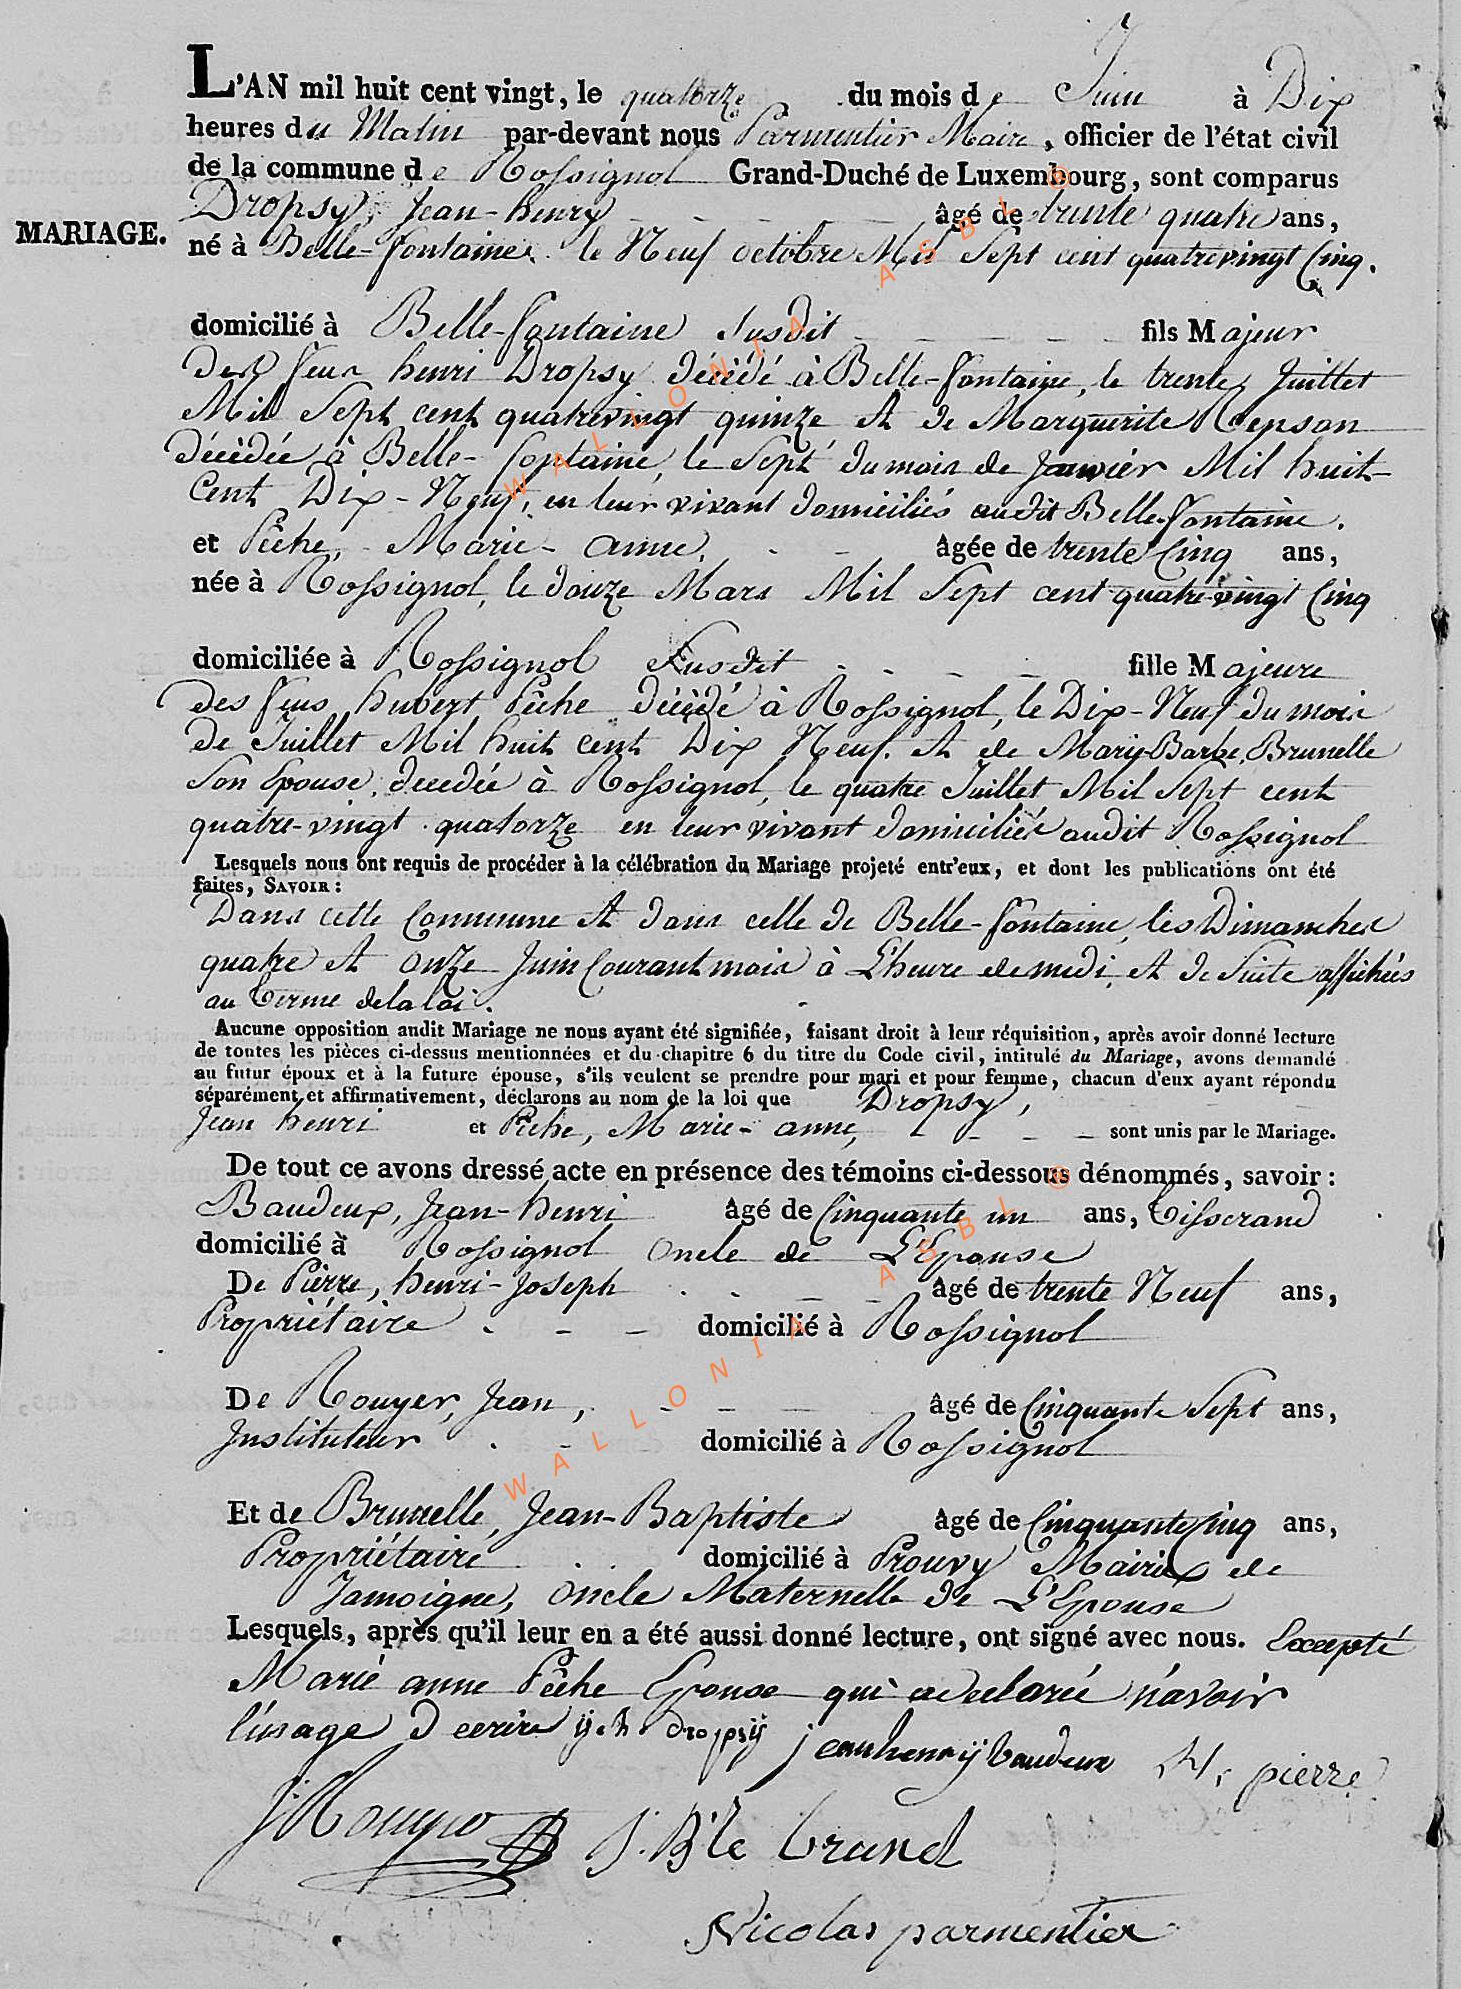 L'AN mil huit cent vingt, le quatorze du mois de Juin à Dix
heures du Matin par-devant nous Parmentier Maire, officier de l'état civil
de la commune de Rossignol Grand-Duché de Luxembourg, sont comparus
Dropsy, Jean-henry âgé de trente quatre ans,
MARIAGE.
né à Belle-fontaine le Neuf octobre Mil Sept cent quatrevingt Cinq.
domicilié à Belle-fontaine Susdit fils Majeur
des feux henri Dropsy décédé à Belle-fontaine, le trente Juillet
Mil Sept cent quatrevingt quinze et de Marguerite
décédée à Belle-fontaine, le Sept du mois de Janvier Mil huit
Cent Dix-Neuf, en leur vivant domiciliés audit Belle-fontaine.
et Pêche, Marie-anne, âgée de trente Cinq ans,
née à Rossignol, le douze Mars Mil Sept cent quatre-vingt Cinq
domiciliée à Rossignol Susdit fille Majeure
des feus hubert Pêche décédé à Rossignol, le Dix-Neuf du mois
de Juillet Mil huit cent Dix Neuf. et de Marie-Barbe, Brunelle
Son Epouse, decedée à Rossignol, le quatre Juillet Mil Sept cent
quatre-vingt quatorze en leur vivant domiciliés audit Rossignol
Lesquels nous ont requis de procéder à la célébration du Mariage projeté entr'eux, et dont les publications ont été
faites, SAVOIR:
Dans cette Commune et dans celle de Belle-fontaine, les Dimanches
quatre et onze Juin Courant mois à L'heure de midi, et de Suite affichées
au terme de la loi.
Aucune opposition audit Mariage ne nous ayant été signifiée, faisant droit à leur réquisition, après avoir donné lecture
de toutes les pièces ci-dessus mentionnées et du chapitre 6 du titre du Code civil, intitulé du Mariage, avons demandé
au futur époux et à la future épouse, s'ils veulent se prendre pour mari et pour femme, chacun d'eux ayant répondu
séparément et affirmativement, déclarons au nom de la loi que Dropsy,
Jean henri et Pêche, Marie-anne, sont unis par le Mariage.
De tout ce avons dressé acte en présence des témoins ci-dessous dénommés, savoir:
Baudeux, Jean-henri âgé de Cinquante un ans, tisserand
domicilié à Rossignol Oncle de L'Epouse
De Pierre, henri-Joseph âgé de trente Neuf ans,
Propriétaire domicilié à Rossignol
De Rouyer, Jean, âgé de Cinquante Sept ans,
Instituteur domicilié à Rossignol
Et de Brunelle, Jean-Baptiste âgé de Cinquante Cinq ans,
Propriétaire domicilié à Prouvy Mairie de
Jamoigne, Oncle Maternelle de L'Epouse
Lesquels, après qu'il leur en a été aussi donné lecture, ont signé avec nous. Excepté
Marie anne Pêche Epouse qui a declaré n'avoir
l'usage d'ecrire j. h. dropsij jeanhenrijbaudeux H, pierre
JRouyer J. B'te brunel
Nicolas parmentier
WALLONIA ASBL ®
WALLONIA ASBL ®